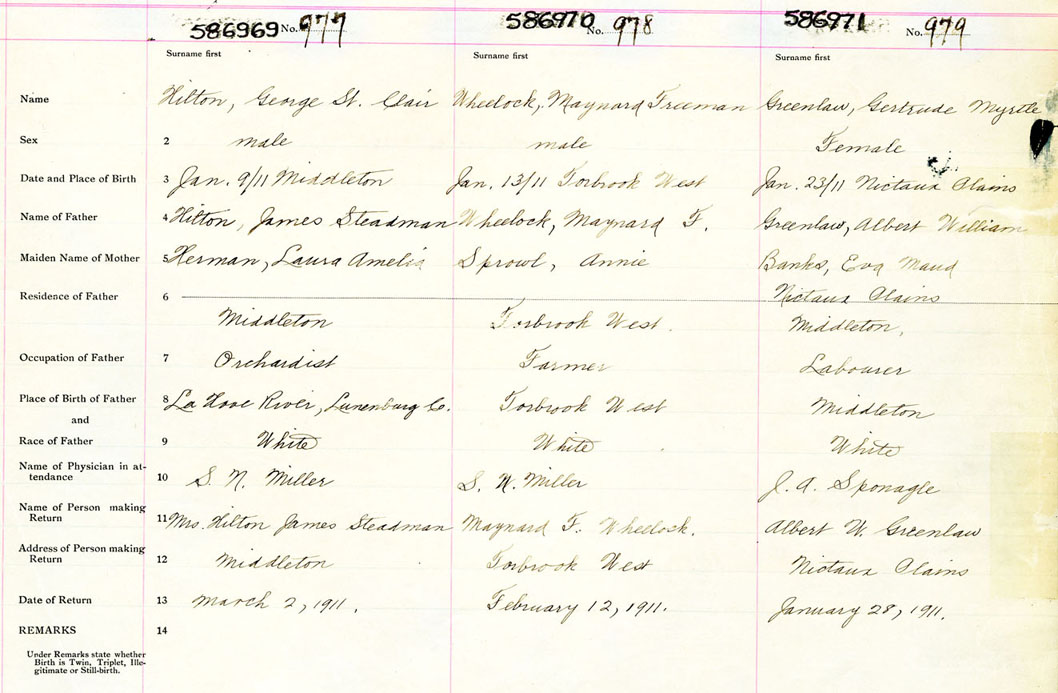 586969 No. 977 586970 No. 978 586971 No. 979
Surname first Surname first Surname first
Name Hilton, George St. Clair Wheelock, Maynard Freeman Greenlaw, Gertrude Myrtle
Sex 2 male male Female
Date and Place of Birth 3 Jan. 9/11 Middleton Jan. 13/11 Torbrook West Jan. 23/11 Nictaux Plains
Name of Father 4 Hilton, James Steadman Wheelock, Maynard F. Greenlaw, Albert William
Maiden Name of Mother 5 Herman, Laura Amelia Sprowl, Annie Banks, Eva Maud
Residence of Father 6 Nictaux Plains
Middleton Torbrook West. Middleton,
Occupation of Father 7 Orchardist Farmer Labourer
Place of Birth of Father 8 La Have River, Lunenburg Co. Torbrook West Middleton
and
Race of Father 9 White White White
Name of Physician in at-
tendance 10 S. N. Miller S. N. Miller J. A. Sponagle
Name of Person making
Return 11 Mrs. Hilton James Steadman Maynard F. Wheelock. Albert W. Greenlaw
Address of Person making
Return 12 Middleton Torbrook West Nictaux Plains
Date of Return 13 March 2, 1911. February 12, 1911. January 28, 1911.
REMARKS 14
Under Remarks state whether
Birth is Twin, Triplet, Ille-
gitimate or Still-birth.